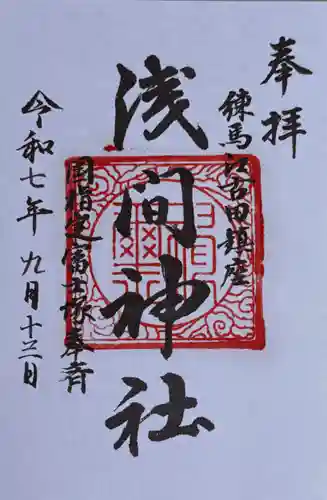 奉拝
練馬江古田鎮座
浅間神社
国指定富士塚奉斎
令和七年九月十三日